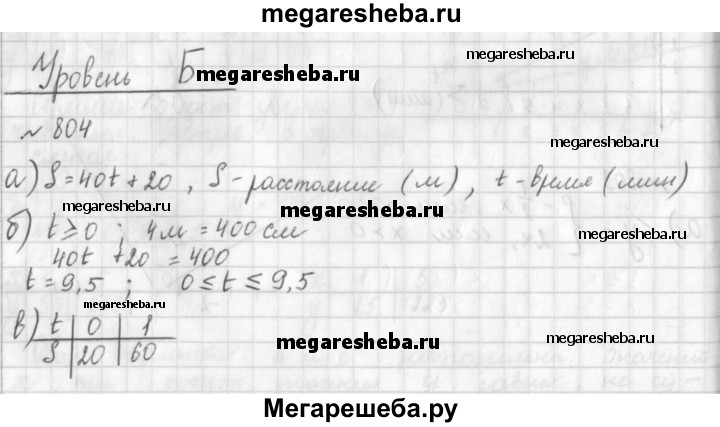 megaresheba.ru
Уровень Б
megaresheba.ru
megaresheba.ru
№ 804
megaresheba.ru
а) S = 40t + 20 , S - расстояние (м) , t - время (мин)
megaresheba.ru
б) t ≥ 0 ; 4м = 400 см
megaresheba.ru
40t + 20 = 400
t = 9,5 ; 0 ≤ t ≤ 9,5
megaresheba.ru
в) t 0 1
S 20 60
megaresheba.ru
megaresheba.ru
Мегарешеба.ру